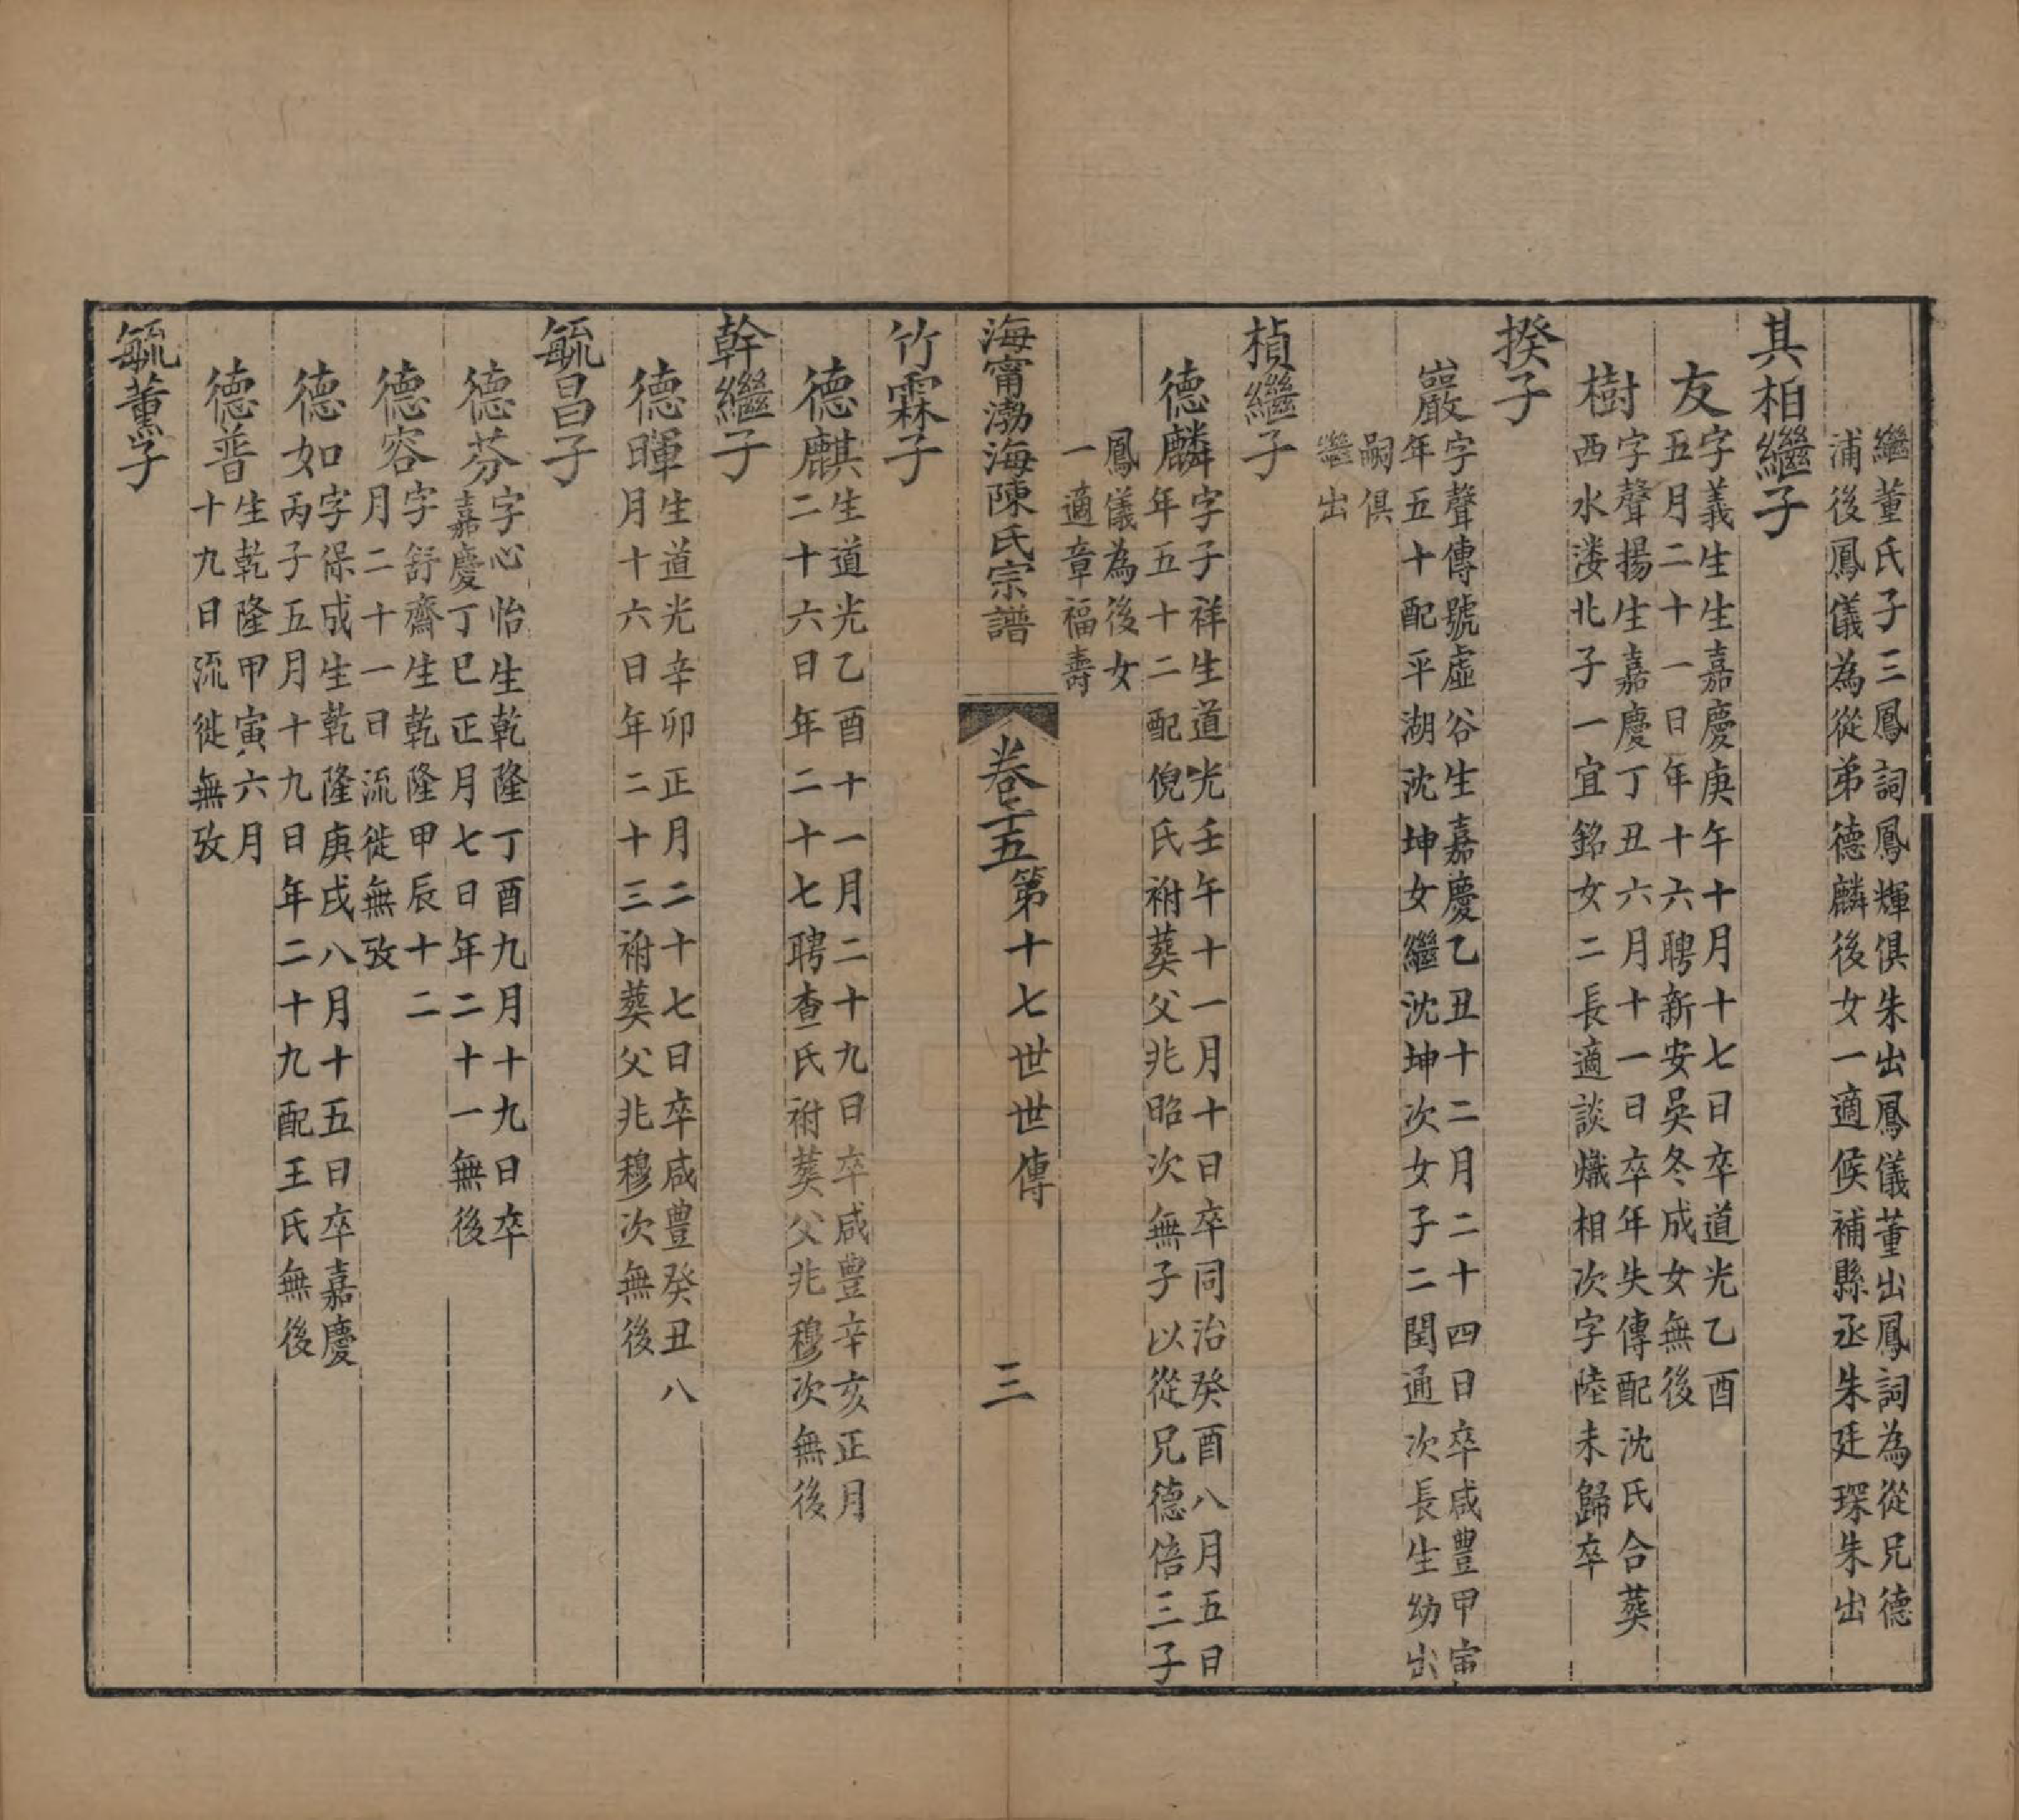 繼董氏子三鳳詞鳳輝俱朱出鳳儀董出鳳詞為從兄德
浦後鳳儀為從弟德麟後女一適候補縣丞朱廷琛朱出
其柏繼子
友字義生生嘉慶庚午十月十七日卒道光乙酉
五月二十一日年十六聘新安吳冬成女無後
樹字聲揚生嘉慶丁丑六月十一日卒年失傳配沈氏合葬
西水溇北子一宜銘女二長適談熾相次字陸未歸卒
揆子
巖字聲傳號虛谷生嘉慶乙丑十二月二十四日卒咸豐甲寅
年五十配平湖沈坤女繼沈坤次女子二閏通次長生幼出
嗣俱
繼出
楨繼子
德麟字子祥生道光壬午十一月十日卒同治癸酉八月五日
年五十二配倪氏祔葬父兆昭次無子以從兄德倍三子
鳳儀為後女
一適章福壽
海甯渤海陳氏宗譜 卷十五第十七世世傳 三
竹霖子
德麒生道光乙酉十一月二十九日卒咸豐辛亥正月
二十六日年二十七聘查氏祔葬父兆穆次無後
幹繼子
德暉生道光辛卯正月二十七日卒咸豐癸丑八
月十六日年二十三祔葬父兆穆次無後
毓昌子
德芬字心怡生乾隆丁酉九月十九日卒
嘉慶丁巳正月七日年二十一無後
德容字舒齋生乾隆甲辰十二
月二十一日流徙無攷
德如字保成生乾隆庚戌八月十五日卒嘉慶
丙子五月十九日年二十九配王氏無後
德普生乾隆甲寅六月
十九日流徙無攷
毓薰子